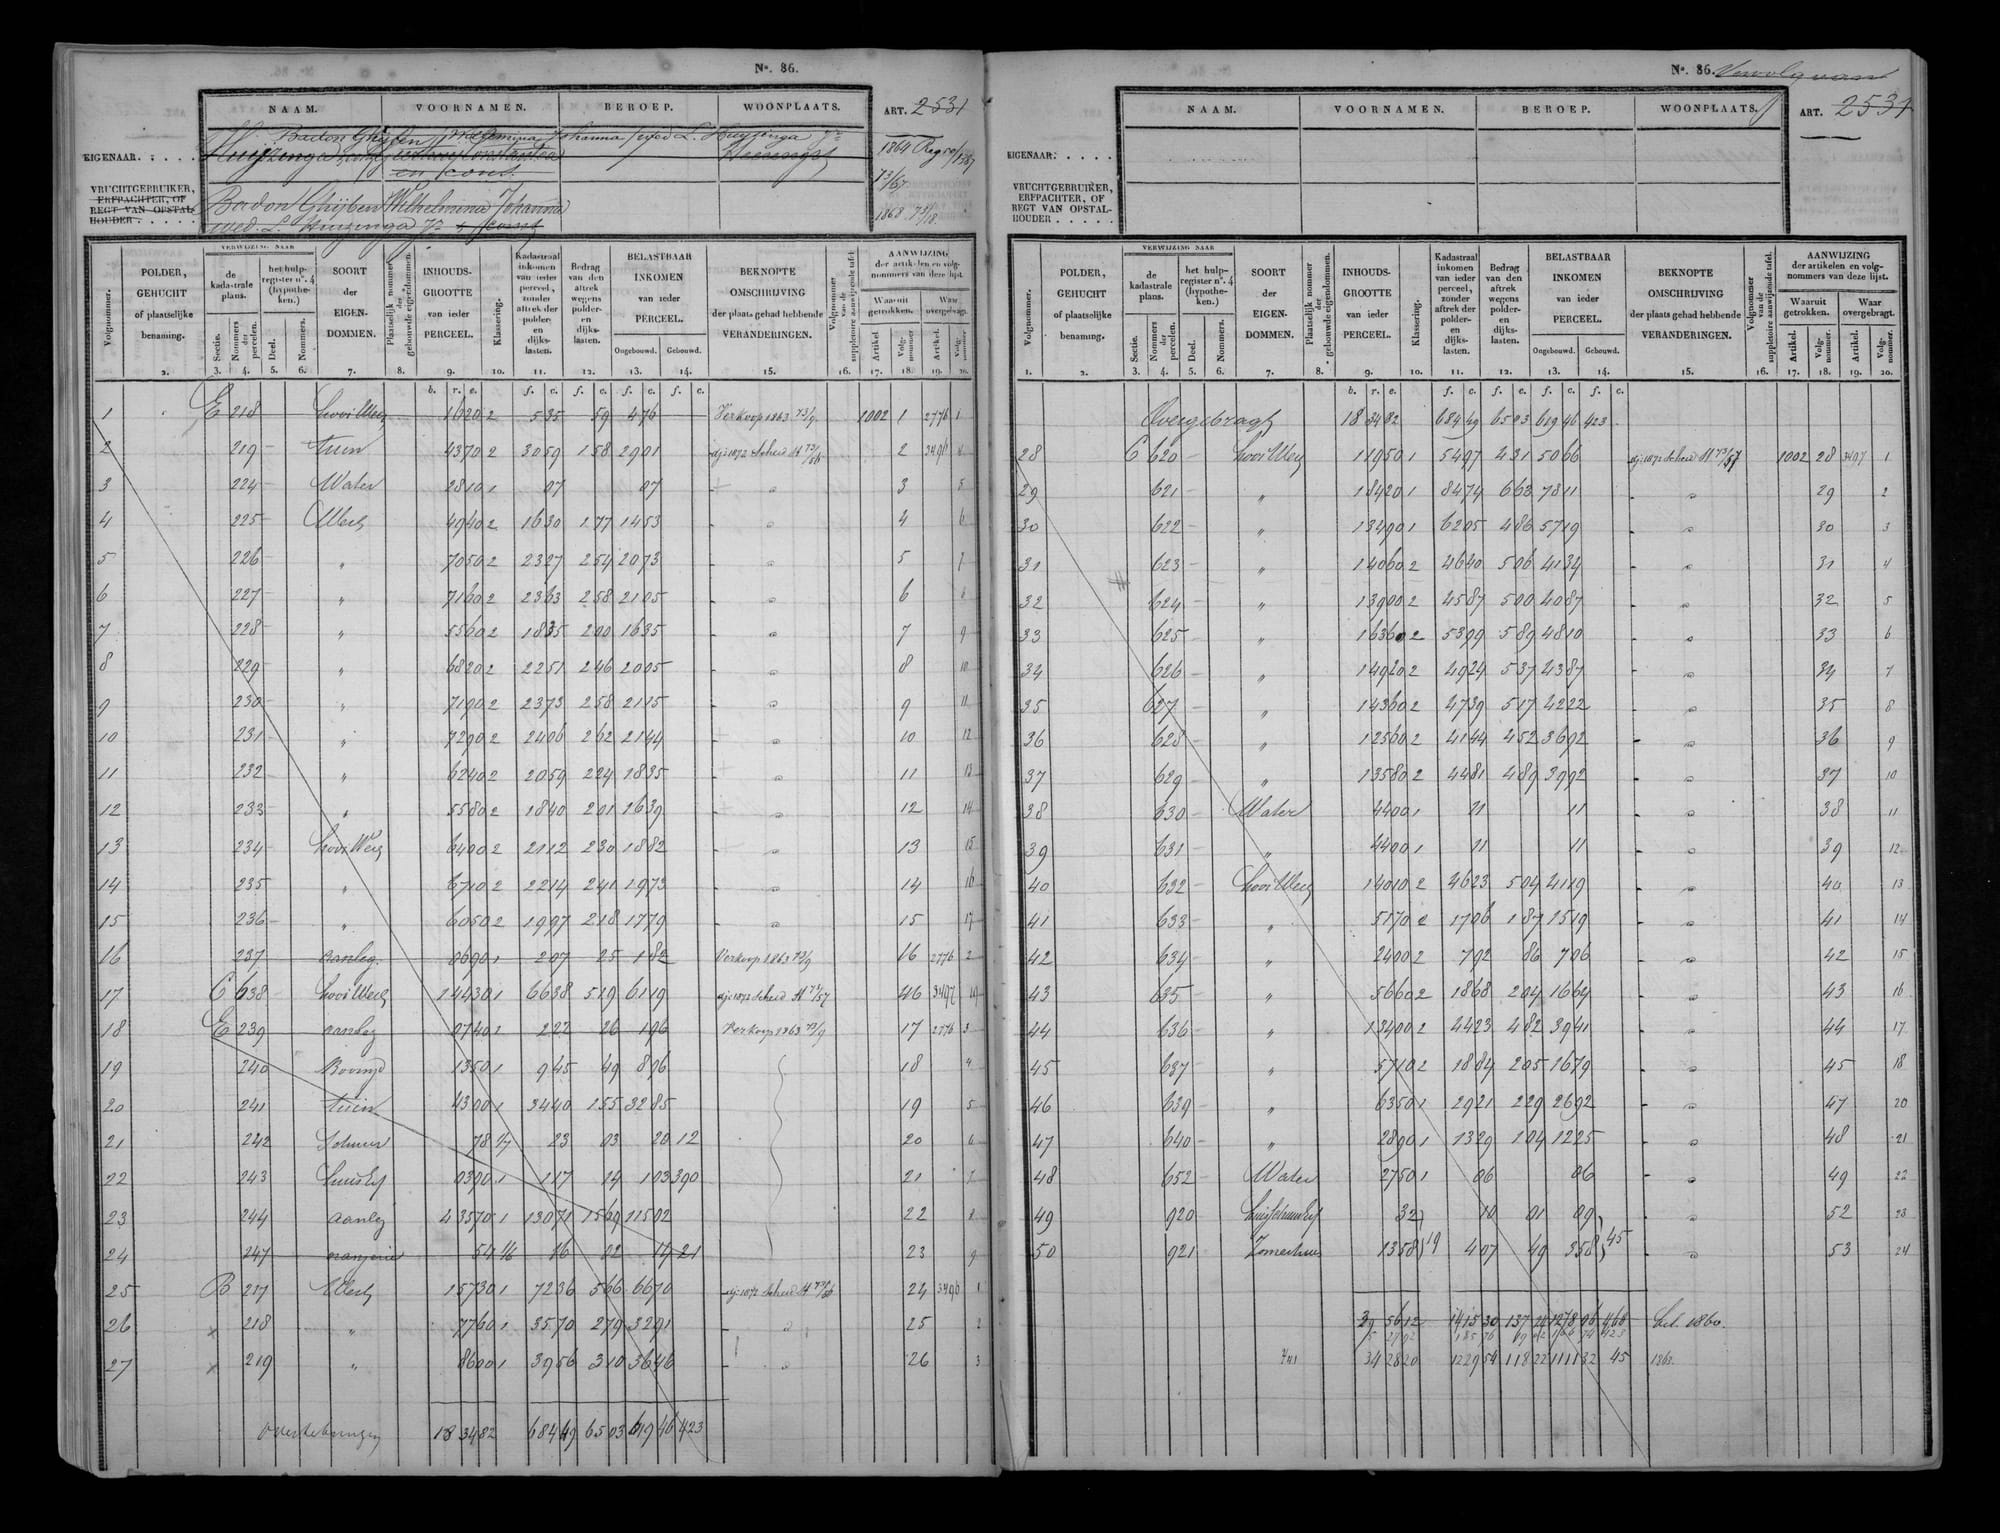 Nº. 86.
NAAM. VOORNAMEN. BEROEP. WOONPLAATS. ART. 2531
EIGENAAR. Badon Ghijben Wilhelmina Johanna wed L. Huizenga Jz
Huizenga
en cons.
VRUCHTGEBRUIKER, ERFPACHTER, OF REGT VAN OPSTALHOUDER. Badon Ghijben Wilhelmina Johanna
wed. L. Huizenga Jz + cons
1864
73/67
1868 73/18
VERWIJZING NAAR
Volgnummer. POLDER, GEHUCHT of plaatselijke benaming. de kadastrale plans. Sectie. Nommers der perceelen. het hulpregister nº. 4 (hypotheken.) Deel. Nommers. SOORT der EIGENDOMMEN. Plaatselijk nommer der gebouwde eigendommen. INHOUDSGROOTTE van ieder PERCEEL. Klassering. Kadastraal inkomen van ieder perceel, zonder aftrek der polder- en dijkslasten. Bedrag van den aftrek wegens polder- en dijkslasten. BELASTBAAR INKOMEN van ieder PERCEEL. Ongebouwd. Gebouwd. BEKNOPTE OMSCHRIJVING der plaats gehad hebbende VERANDERINGEN. Volgnommer van de suppletoire aanwijzende tafel. AANWIJZING der artikelen en volgnommers van deze lijst. Waaruit getrokken. Artikel. Volgnommer. Waar overgebragt. Artikel. Volgnommer.
2. 3. 4. 5. 6. 7. 8. 9. 10. 11. 12. 13. 14. 15. 16. 17. 18. 19. 20.
b. r. e. f. c. f. c. f. c. f. c.
1 E 218 hooi Weij 1620 2 535 59 476 Verkoop 1863 73/9 1002 1 2776 1
2 219 tuin 4370 2 3059 158 2901 dj: 1872 Scheid 73/56 2 3496 4
3 224 Water 2810 1 07 07 3 5
4 225 Weij 4940 2 1630 177 1453 4 6
5 226 " 7050 2 2327 254 2073 5 7
6 227 " 7160 2 2363 258 2105 6 8
7 228 " 5560 2 1835 200 1635 7 9
8 229 " 6820 2 2251 246 2005 8 10
9 230 " 7190 2 2373 258 2115 9 11
10 231 " 7290 2 2406 262 2144 10 12
11 232 " 6240 2 2059 224 1835 11 13
12 233 " 5580 2 1840 201 1639 12 14
13 234 hooi Weij 6400 2 2112 230 1882 13 15
14 235 " 6710 2 2214 241 1973 14 16
15 236 " 6050 2 1997 218 1779 15 17
16 237 aanleg 0690 1 207 25 182 Verkoop 1863 73/9 16 2776 2
17 C 638 hooi Weij 14430 1 6638 519 6119 dj: 1872 Scheid 73/57 46 3497 19
18 E 239 aanleg 0740 2 222 26 196 Verkoop 1863 73/9 17 2776 3
19 240 1350 1 945 49 896 18 4
20 241 tuin 4300 1 3440 155 3285 19 5
21 242 Schuur 78 23 03 20 12 20 6
22 243 0390 1 117 14 103 390 21 7
23 244 Aanleg 43570 1 13071 1569 11502 22 8
24 247 oranjerie 54 16 02 14 21 23 9
25 B 217 Weij 15730 1 7236 566 6670 dj: 1872 Scheid 73/56 24 3496 1
26 x 218 " 7760 1 3570 279 3291 25 2
27 x 219 " 8600 1 3956 310 3646 26 3
Overtebrengen 18 3482 684 49 65 03 619 46 423
Nº. 86. Vervolg van
NAAM. VOORNAMEN. BEROEP. WOONPLAATS. ART. 2531
EIGENAAR.
VRUCHTGEBRUIKER, ERFPACHTER, OF REGT VAN OPSTALHOUDER.
VERWIJZING NAAR
Volgnummer. POLDER, GEHUCHT of plaatselijke benaming. de kadastrale plans. Sectie. Nommers der perceelen. het hulpregister nº. 4 (hypotheken.) Deel. Nommers. SOORT der EIGENDOMMEN. Plaatselijk nommer der gebouwde eigendommen. INHOUDSGROOTTE van ieder PERCEEL. Klassering. Kadastraal inkomen van ieder perceel, zonder aftrek der polder- en dijkslasten. Bedrag van den aftrek wegens polder- en dijkslasten. BELASTBAAR INKOMEN van ieder PERCEEL. Ongebouwd. Gebouwd. BEKNOPTE OMSCHRIJVING der plaats gehad hebbende VERANDERINGEN. Volgnommer van de suppletoire aanwijzende tafel. AANWIJZING der artikelen en volgnommers van deze lijst. Waaruit getrokken. Artikel. Volgnommer. Waar overgebragt. Artikel. Volgnommer.
1. 2. 3. 4. 5. 6. 7. 8. 9. 10. 11. 12. 13. 14. 15. 16. 17. 18. 19. 20.
b. r. e. f. c. f. c. f. c. f. c.
Overgebragt 18 3482 684 49 65 03 619 46 423
28 C 620 hooi Weij 11950 1 5497 431 5066 dj: 1872 Scheid 73/57 1002 28 3497 1
29 621 " 18420 1 8474 663 7811 29 2
30 622 " 13490 1 6205 486 5719 30 3
31 623 " 14060 2 4640 506 4134 31 4
32 624 " 13900 2 4587 500 4087 32 5
33 625 " 16360 2 5399 589 4810 33 6
34 626 " 14920 2 4924 537 4387 34 7
35 627 " 14360 2 4739 517 4222 35 8
36 628 " 12560 2 4144 452 3692 36 9
37 629 " 13580 2 4481 489 3992 37 10
38 630 Water 4400 1 11 11 38 11
39 631 " 4400 1 11 11 39 12
40 632 hooi Weij 14010 2 4623 504 4119 40 13
41 633 " 5170 2 1706 187 1519 41 14
42 634 " 2400 2 792 86 706 42 15
43 635 " 5660 2 1868 204 1664 43 16
44 636 " 13400 2 4423 482 3941 44 17
45 637 " 5710 2 1884 205 1679 45 18
46 639 " 6350 1 2921 229 2692 47 20
47 640 " 2890 1 1329 104 1225 48 21
48 652 Water 2750 1 06 06 49 22
49 920 32 10 01 09 52 23
50 921 Zomerhuis 1358 19 407 49 358 45 53 24
39 5612 1415 30 137 24 1278 06 468 bel. 1860.
5 2792 185 76 19 02 166 74 423
34 2820 1229 54 118 22 1111 32 45 1863